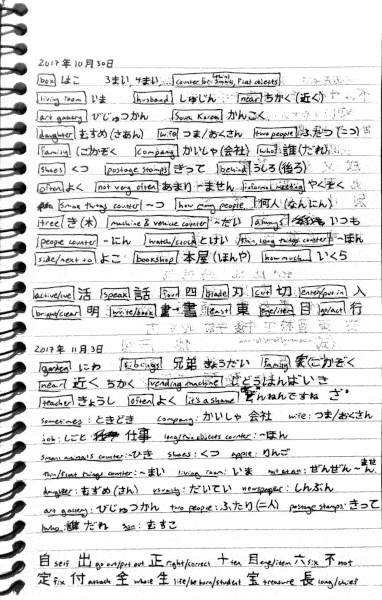 2017年10月30日
box はこ 3まい, 4まい counter for (thin) small, flat objects
living room いま husband しゅじん near ちかく(近く)
art gallery びじゅつかん South Korea かんこく
daughter むすめ(さあん) wife つま/おくさん two people ふたつ(二つ)
family (ごかぞく company かいしゃ(会社) who 誰(だれ)
shoes くつ postage stamps きって behind うしろ(後ろ)
often よく not very often あまり~ません informal meeting やくそく
small things counter ~つ how many people 何人(なんにん)
tree き(木) machine & vehicle counter ~だい always いつも
people counter ~にん watch/clock とけい thin long things counter ~ほん
side/next to よこ bookshop 本屋(ほんや) how much いくら
active/live 活 speak 話 four 四 blade 刃 cut 切 enter/put in 入
bright/clear 明 write/book 書 east 東 eye/item 目 go/act 行
2017年11月3日
garden にわ siblings 兄弟 きょうだい family ごかぞく
near 近く ちかく vending machine じどうはんばいき
teacher きょうし often よく it's a shame ざんねんですね ざ
sometimes: ときどき company: かいしゃ 会社 wife: つま/おくさん
job: しごと 仕事 long/thin objects counter: ~ほん
small animals counter: ~ひき shoes: くつ apple: りんご
thin/flat things counter: ~まい living room: いま not at all: ぜんぜん~ません
daughter: むすめ(さん) usually: だいてい newspaper: しんぶん
art gallery: びじゅつかん two people: ふたり(二人) postage stamps: きって
who 誰 だれ son: むすこ
自 self 出 go out/put out 正 right/correct 十 ten 目 eye/item 六 six 不 not
定 fix 付 attach 全 whole 生 life/be born/student 宝 treasure 長 long/chief